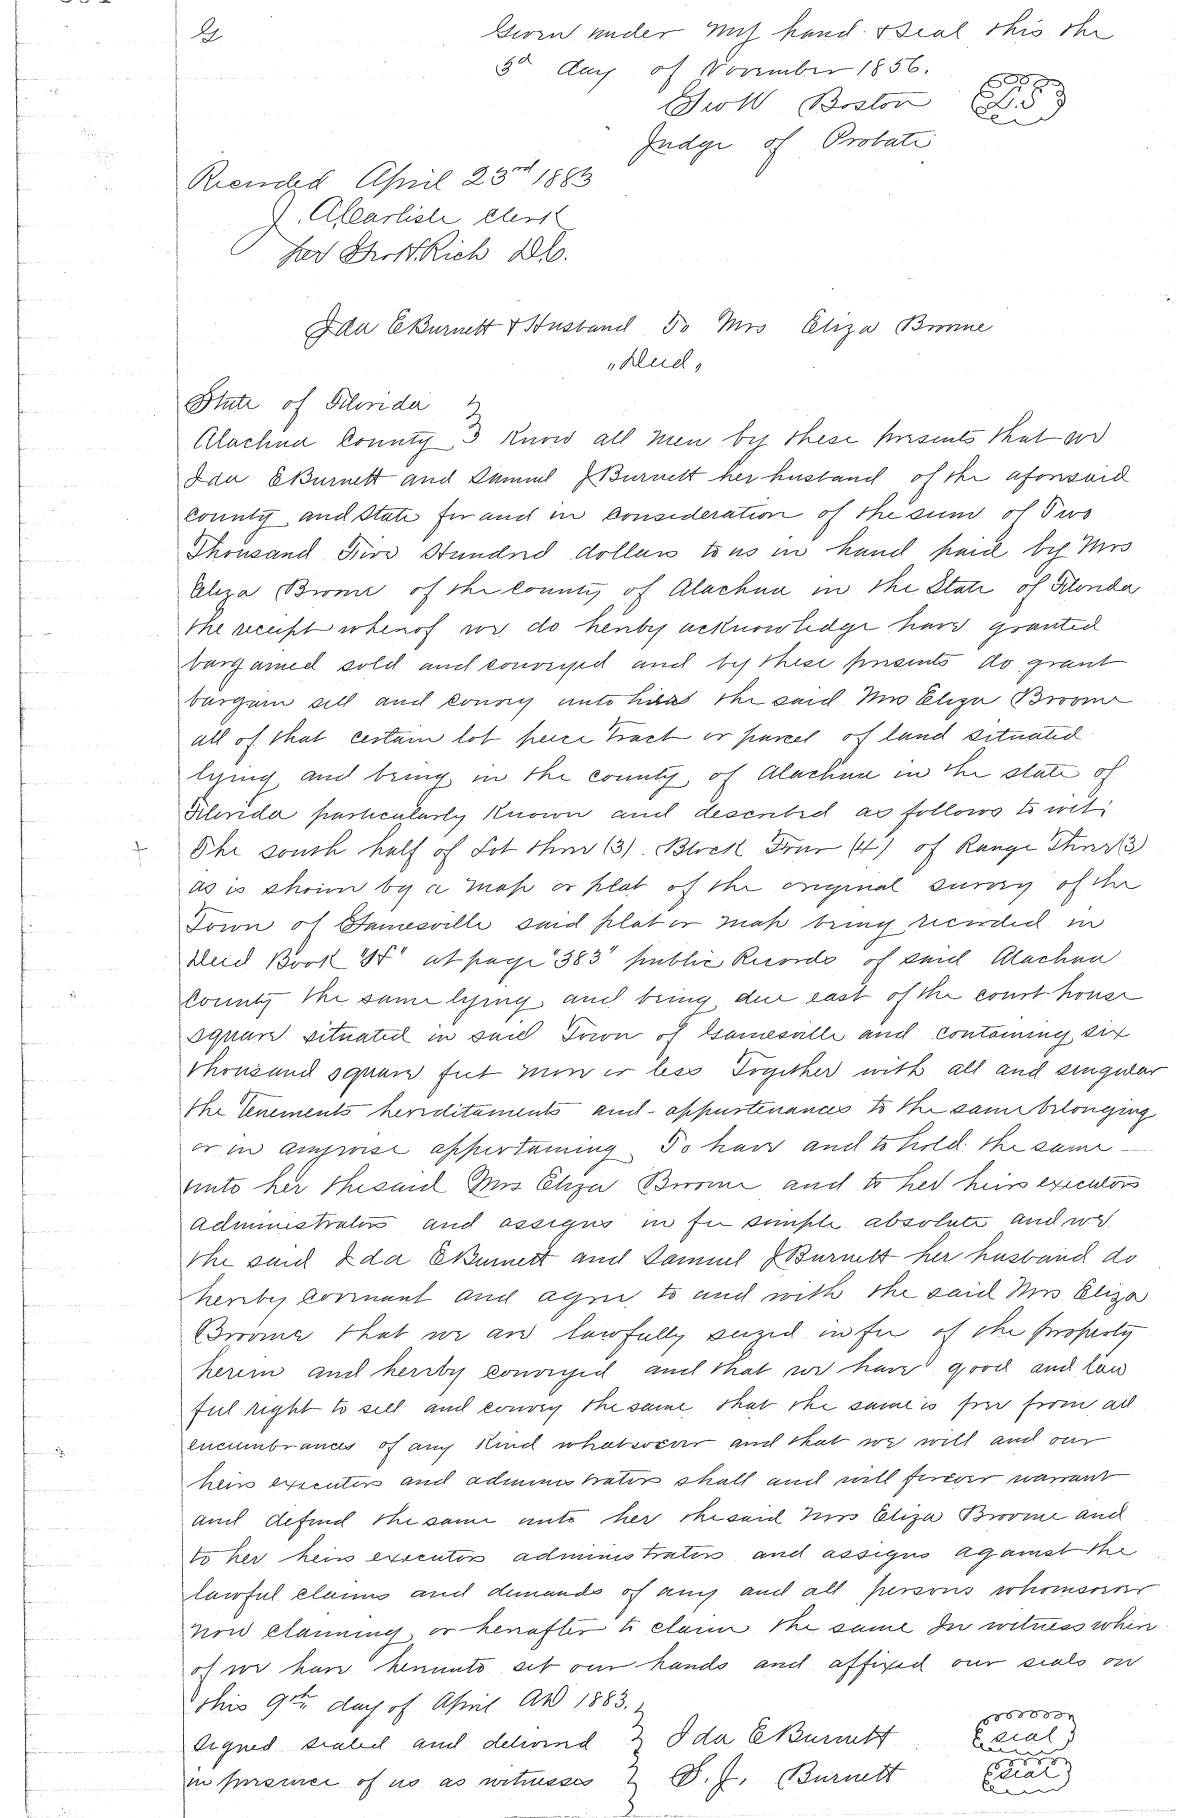 Given under my hand & Seal this the
5th day of November 1856.
Geo W Boston L.S
Judge of Probate
Recorded April 23rd 1883
J. A Carlisle clerk
per Rich D.C.
Ida E Burnett & Husband To Mrs Eliza Broome
"Deed"
State of Florida
Alachua County Know all men by these presents that we
Ida E Burnett and Samuel J Burnett her husband of the aforesaid
County and State for and in consideration of the sum of Two
Thousand Five Hundred dollars to us in hand paid by Mrs
Eliza Broome of the County of Alachua in the State of Florida
the receipt whereof we do hereby acknowledge have granted
bargained sold and conveyed and by these presents do grant
bargain sell and convey unto the said Mrs Eliza Broome
all of that certain lot peice tract or parcel of land situated
lying and being in the county of Alachua in the state of
Florida particularly Known and described as follows to wit:
The south half of Lot three (3). Block Four (4) of Range Three (3)
as is shown by a map or plat of the original survey of the
Town of Gainesville said plat or map being recorded in
Deed Book at page "383" public Records of said Alachua
County the same lying and being due east of the court house
square situated in said Town of Gainesville and containing six
thousand square feet more or less Together with all and singular
the Tenements hereditaments and appurtenances to the same belonging
or in anywise appertaining To have and to hold the same
unto her the said Mrs Eliza Broome and to her heirs executors
administrators and assigns in fee simple absolute and we
the said Ida E Burnett and Samuel J Burnett her husband do
hereby covenant and agree to and with the said Mrs Eliza
Broome that we are lawfully seized in fee of the property
herein and hereby conveyed and that we have good and law
ful right to sell and convey the same that the same is free from all
encumbrances of any Kind whatsoever and that we will and our
heirs executors and administrators shall and will forever warrant
and defend the same unto her the said Mrs Eliza Broome and
to her heirs executors administrators and assigns against the
lawful claims and demands of any and all persons whomsoever
now claiming or hereafter to claim the same In witness where
of we have hereunto set our hands and affixed our seals on
this 9th day of April AD 1883.
Signed sealed and delivered Ida E Burnett seal
in presence of us as witnesses S. J. Burnett seal